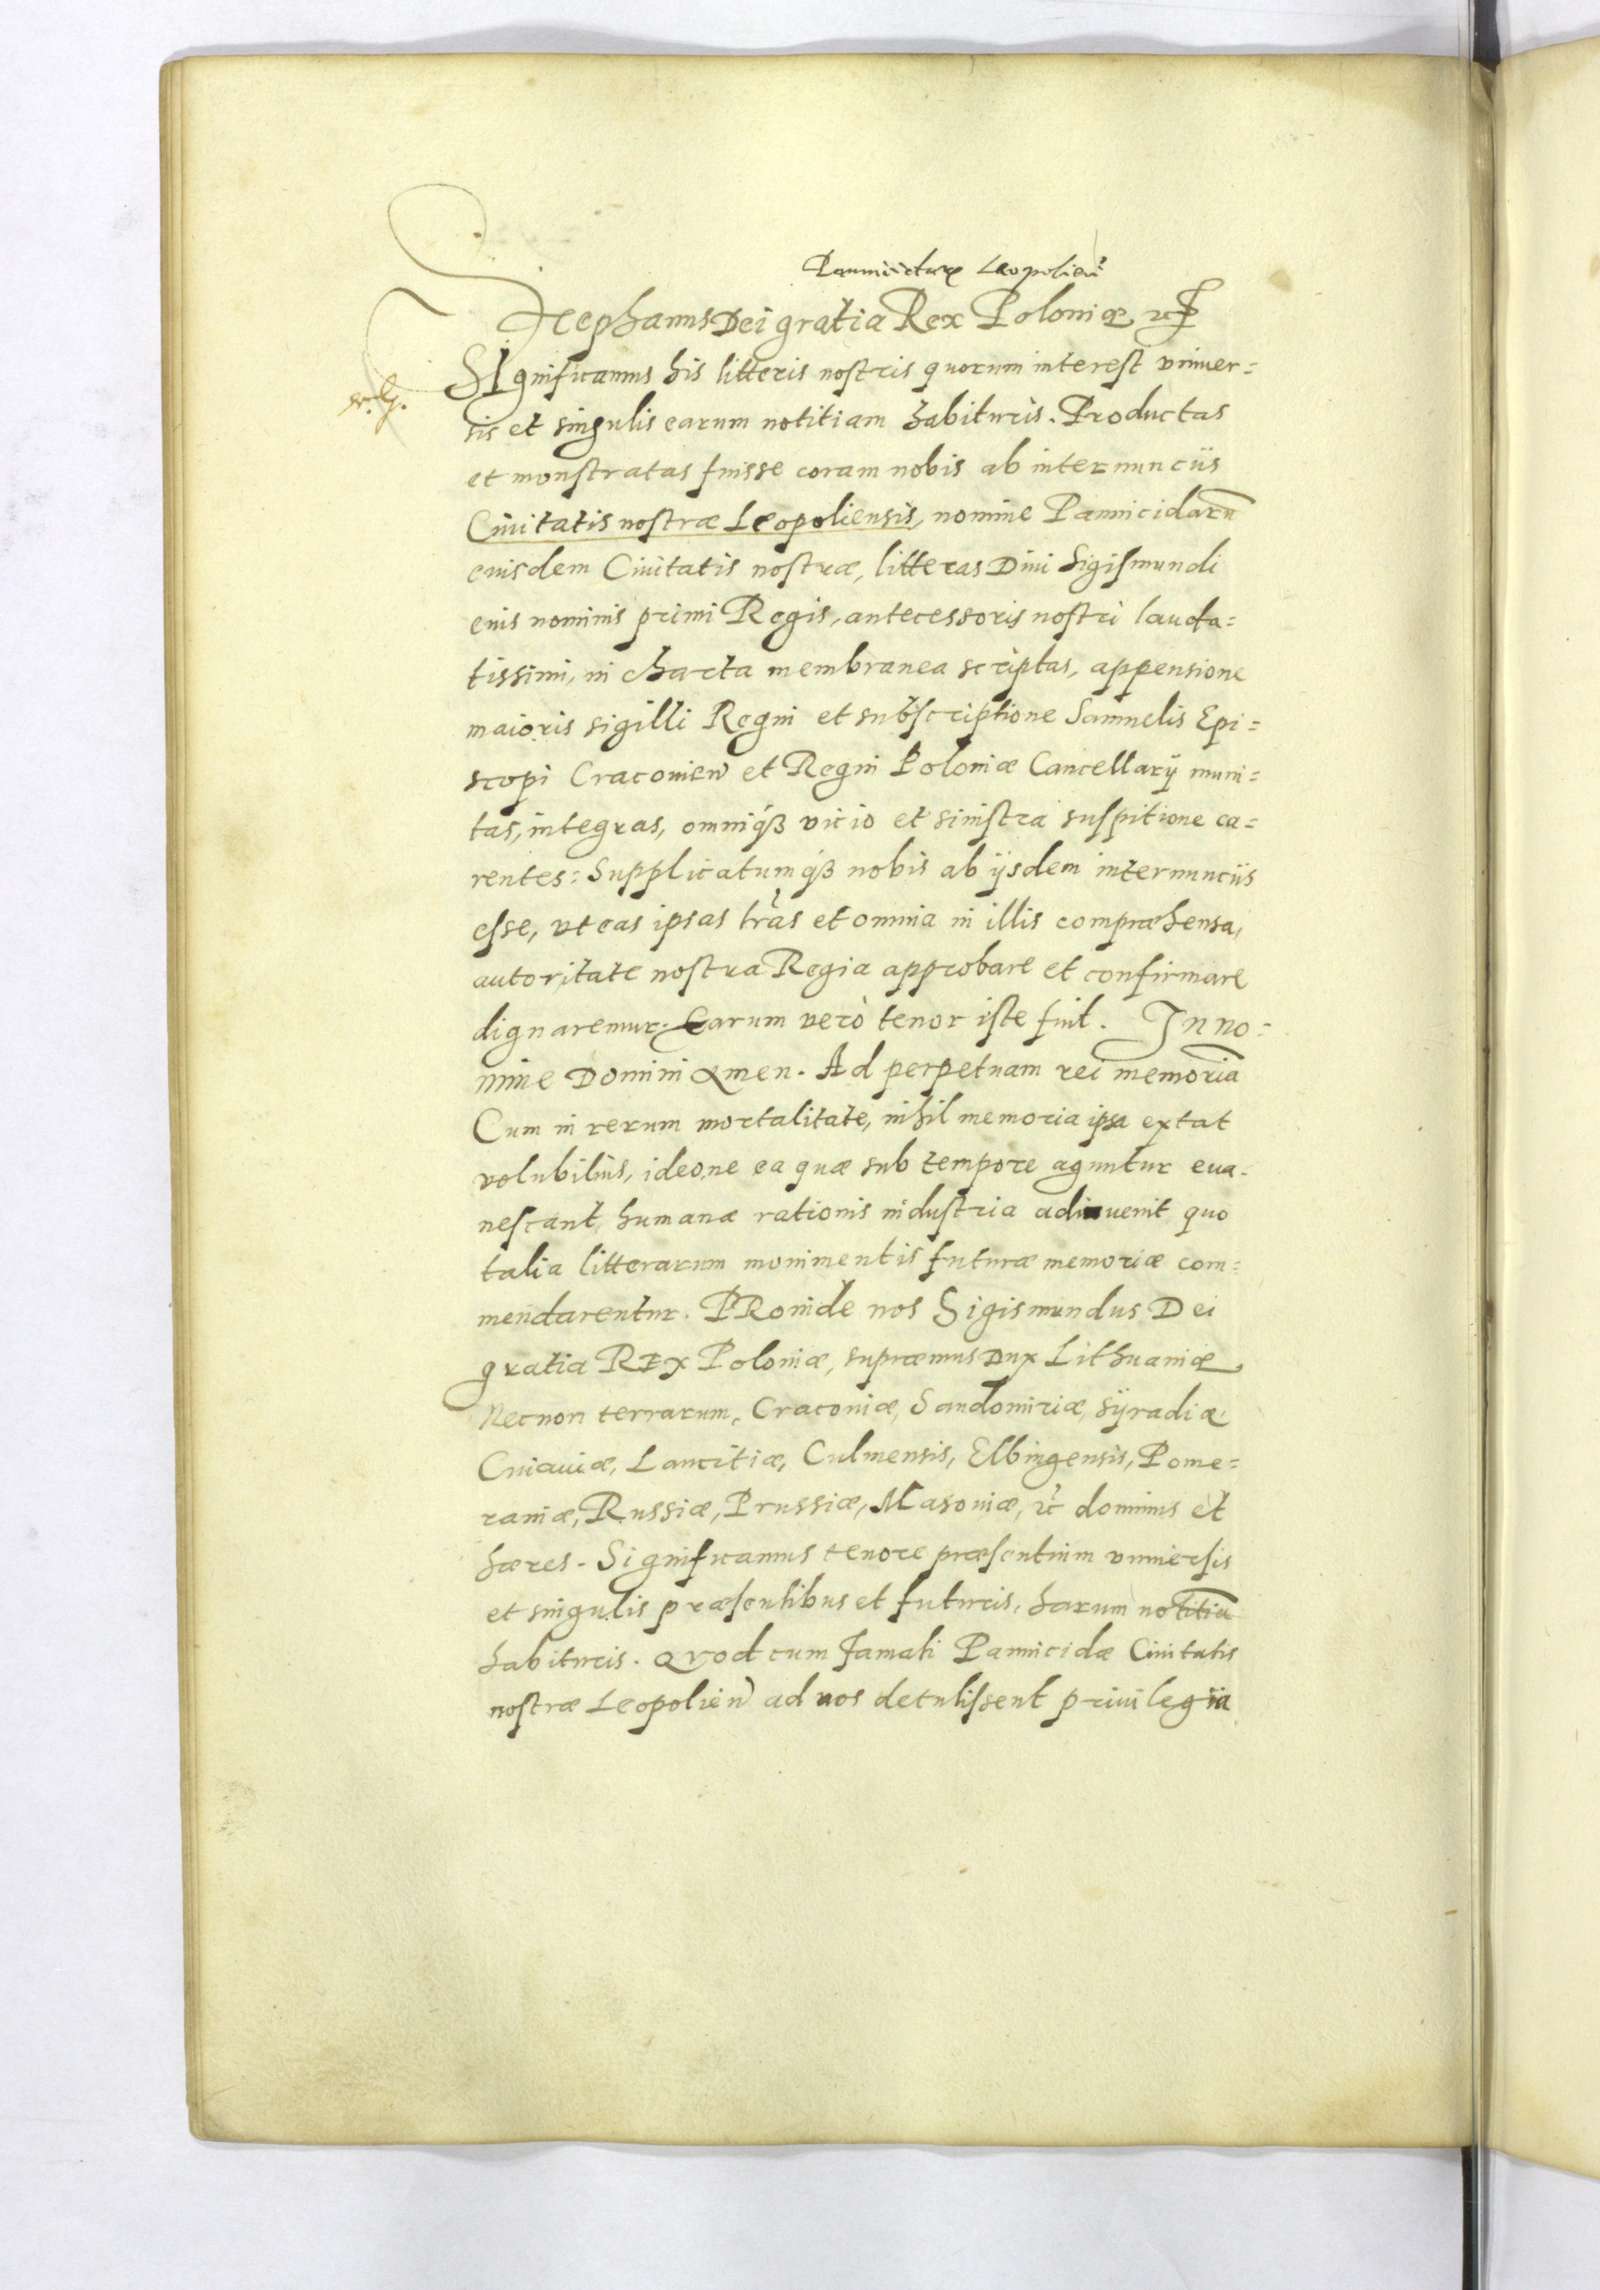 Pannicidarum Leopolien
Stephanus Dei gratia Rex Poloniæ etc
SIgnificamus his litteris nostris quorum interest vniuer=
sis et singulis earum notitiam habituris. Productas
et monstratas fuisse coram nobis ab internunciis
Ciuitatis nostræ Leopoliensis, nomine Pannicidarū
eiusdem Ciuitatis nostræ, litteras Diui Sigismundi
eius nominis primi Regis, antecessoris nostri lauda=
tissimi, in charta membranea scriptas, appensione
maioris sigilli Regni et subscriptione Samuelis Epi=
scopi Cracouien et Regni Poloniæ Cancellarij muni=
tas, integras, omniqȝ vicio et sinistra suspitione ca=
rentes: Supplicatumqȝ nobis ab ijsdem internunciis
esse, vt eas ipsas lr̃as et omnia in illis compræhensa,
autoritate nostra Regia approbare et confirmare
dignaremur. Earum verò tenor iste fuit. In no=
mine Domini Amen. Ad perpetuam rei memoriā
Cum in rerum mortalitate, nihil memoria ipsa extat
volubilius, ideo, ne ea quæ sub tempore aguntur eua=
nescant, humanæ rationis industria adinuenit quo
talia litterarum monimentis futuræ memoriæ com=
mendarentur. PRoinde nos Sigismundus Dei
gratia REX Poloniæ, supræmus Dux Lithuaniæ
Necnon terrarum, Cracouiæ, Sandomiriæ, Syradiæ
Cuiauiæ, Lancitiæ, Culmensis, Elbingensis, Pome=
raniæ, Russiæ, Prussiæ, Masouiæ, etc dominus et
hæres. Significamus tenore præsentium vniuersis
et singulis præsentibus et futuris, harum notitiā
habituris. Quod cum famati Pannicidæ Ciuitatis
nostræ Leopolien ad nos detulissent priuilegia